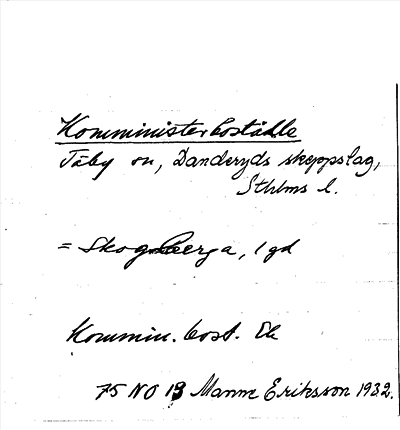 Komministerboställe
Täby sn, Danderyds skeppslag,
Sthlms l.
= Skogsberga, 1 gd
Kommin. bost. Ek
75 NO 13 Manne Eriksson 1932.